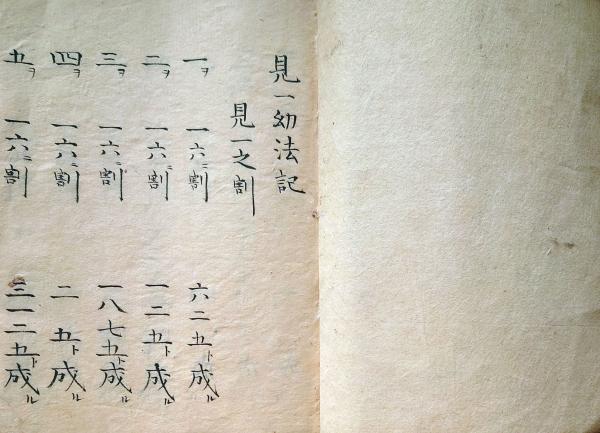 見一幼法記
見一之割
一ヲ 一六ニ割 六二五ト成ル
二ヲ 一六ニ割 一二五ト成ル
三ヲ 一六ニ割 一八七五ト成ル
四ヲ 一六ニ割 二五ト成ル
五ヲ 一六ニ割 三一二五ト成ル